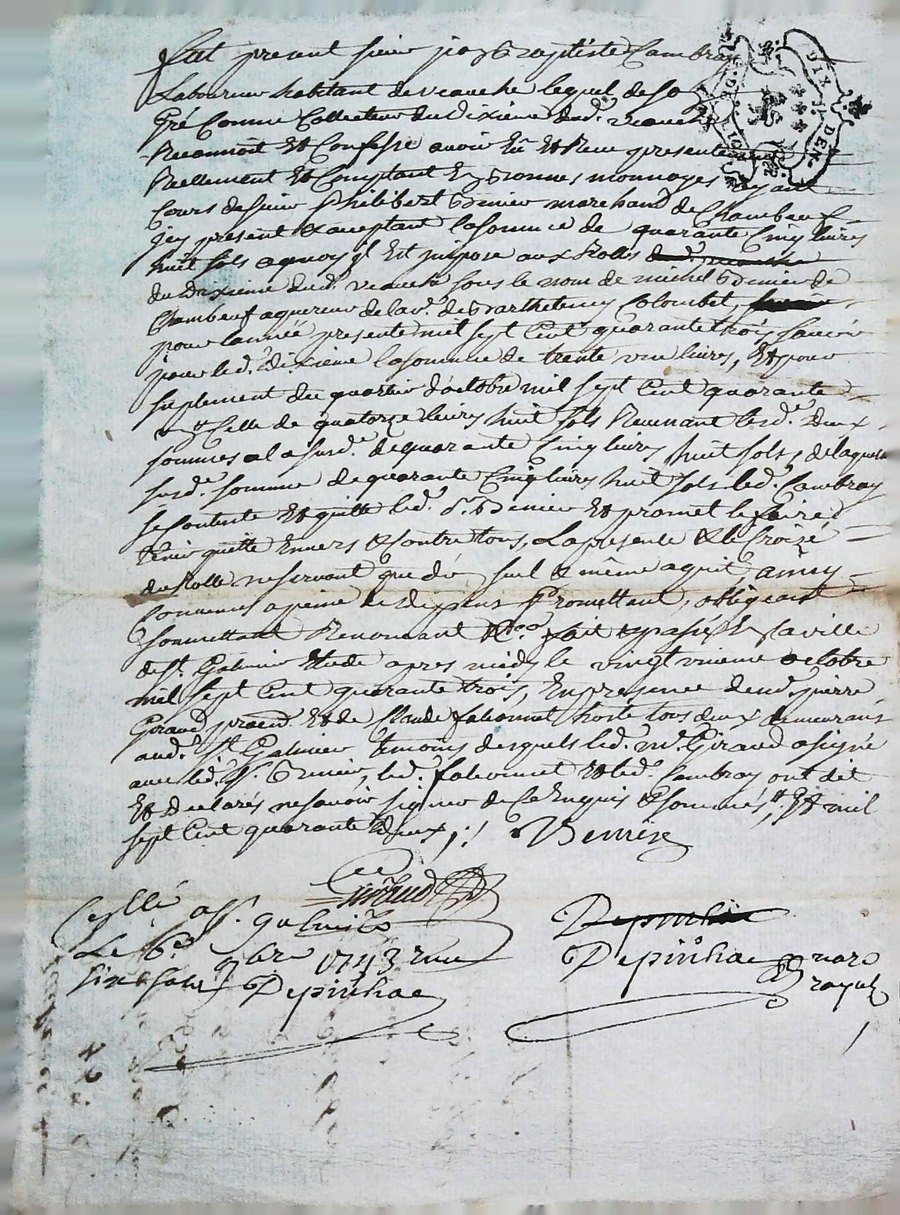 fut present sieur jean Baptiste Cambray
Laboureur habitant de veauche lequel de so
Gré Comme Collecteur du Dixième dud. veauche
Reconnoit Et Confesse avoir Eü Et Receu presentem
Reellement Et Comptant En Bonnes monnoyes ayant
Cours de sieur Philibert Grenier marchand de Chambeuf
jcy present & acceptant la somme de quarante Cinq livres
huit sols a quoy jl Est jmposé aux Rolles
du Dixieme dud. veauche sous le nom de michel Grenier de
Chambeuf aquereur de la ve. de Barthelemy Colombet,
pour l'année presente mil sept Cent quarante trois, savoir
pour led. dixieme la somme de trente une livres, Et pour
suplement du quartier d'octobre mil sept Cent quarante
Celle de quatorze livres huit sols Revenant lesd. deux
sommes a la susd. de quarante Cinq livres huit sols, de laquelle
susd. somme de quarante Cinq livres huit sols led. Cambray
se Contente Et quitte led. sr. Grenier Et promet le faire
tenir quitte Envers & Contre tous, La presente & le Croisé
du Rolle ne servant que d'un seul & même aquit, ainsy
Convenu a peine de Depens Promettant, obligeant
soumettant Renonçant &ca. fait & passé la ville
de St. Galmier Etude apres midy le vingt unieme octobre
mil sept Cent quarante trois, En presence de me. pierre
Giraud pratn. Et de Claude falconnet hoste tous deux demeurans
aud. St. Galmier temoins desquels led. me. Giraud a signé
avec led. sr. Grenier, led. falconnet Et led. Cambray ont dit
Et Declarés ne savoir signer de Ce Enquis & sommés, mil
sept Cent quarante deux,
Giraud
Cellé a St. galmier
Le 6e 9bre 1743 reçu
six sols Depinhac
Depinhac
Depinhac
royal
DIX DEN.